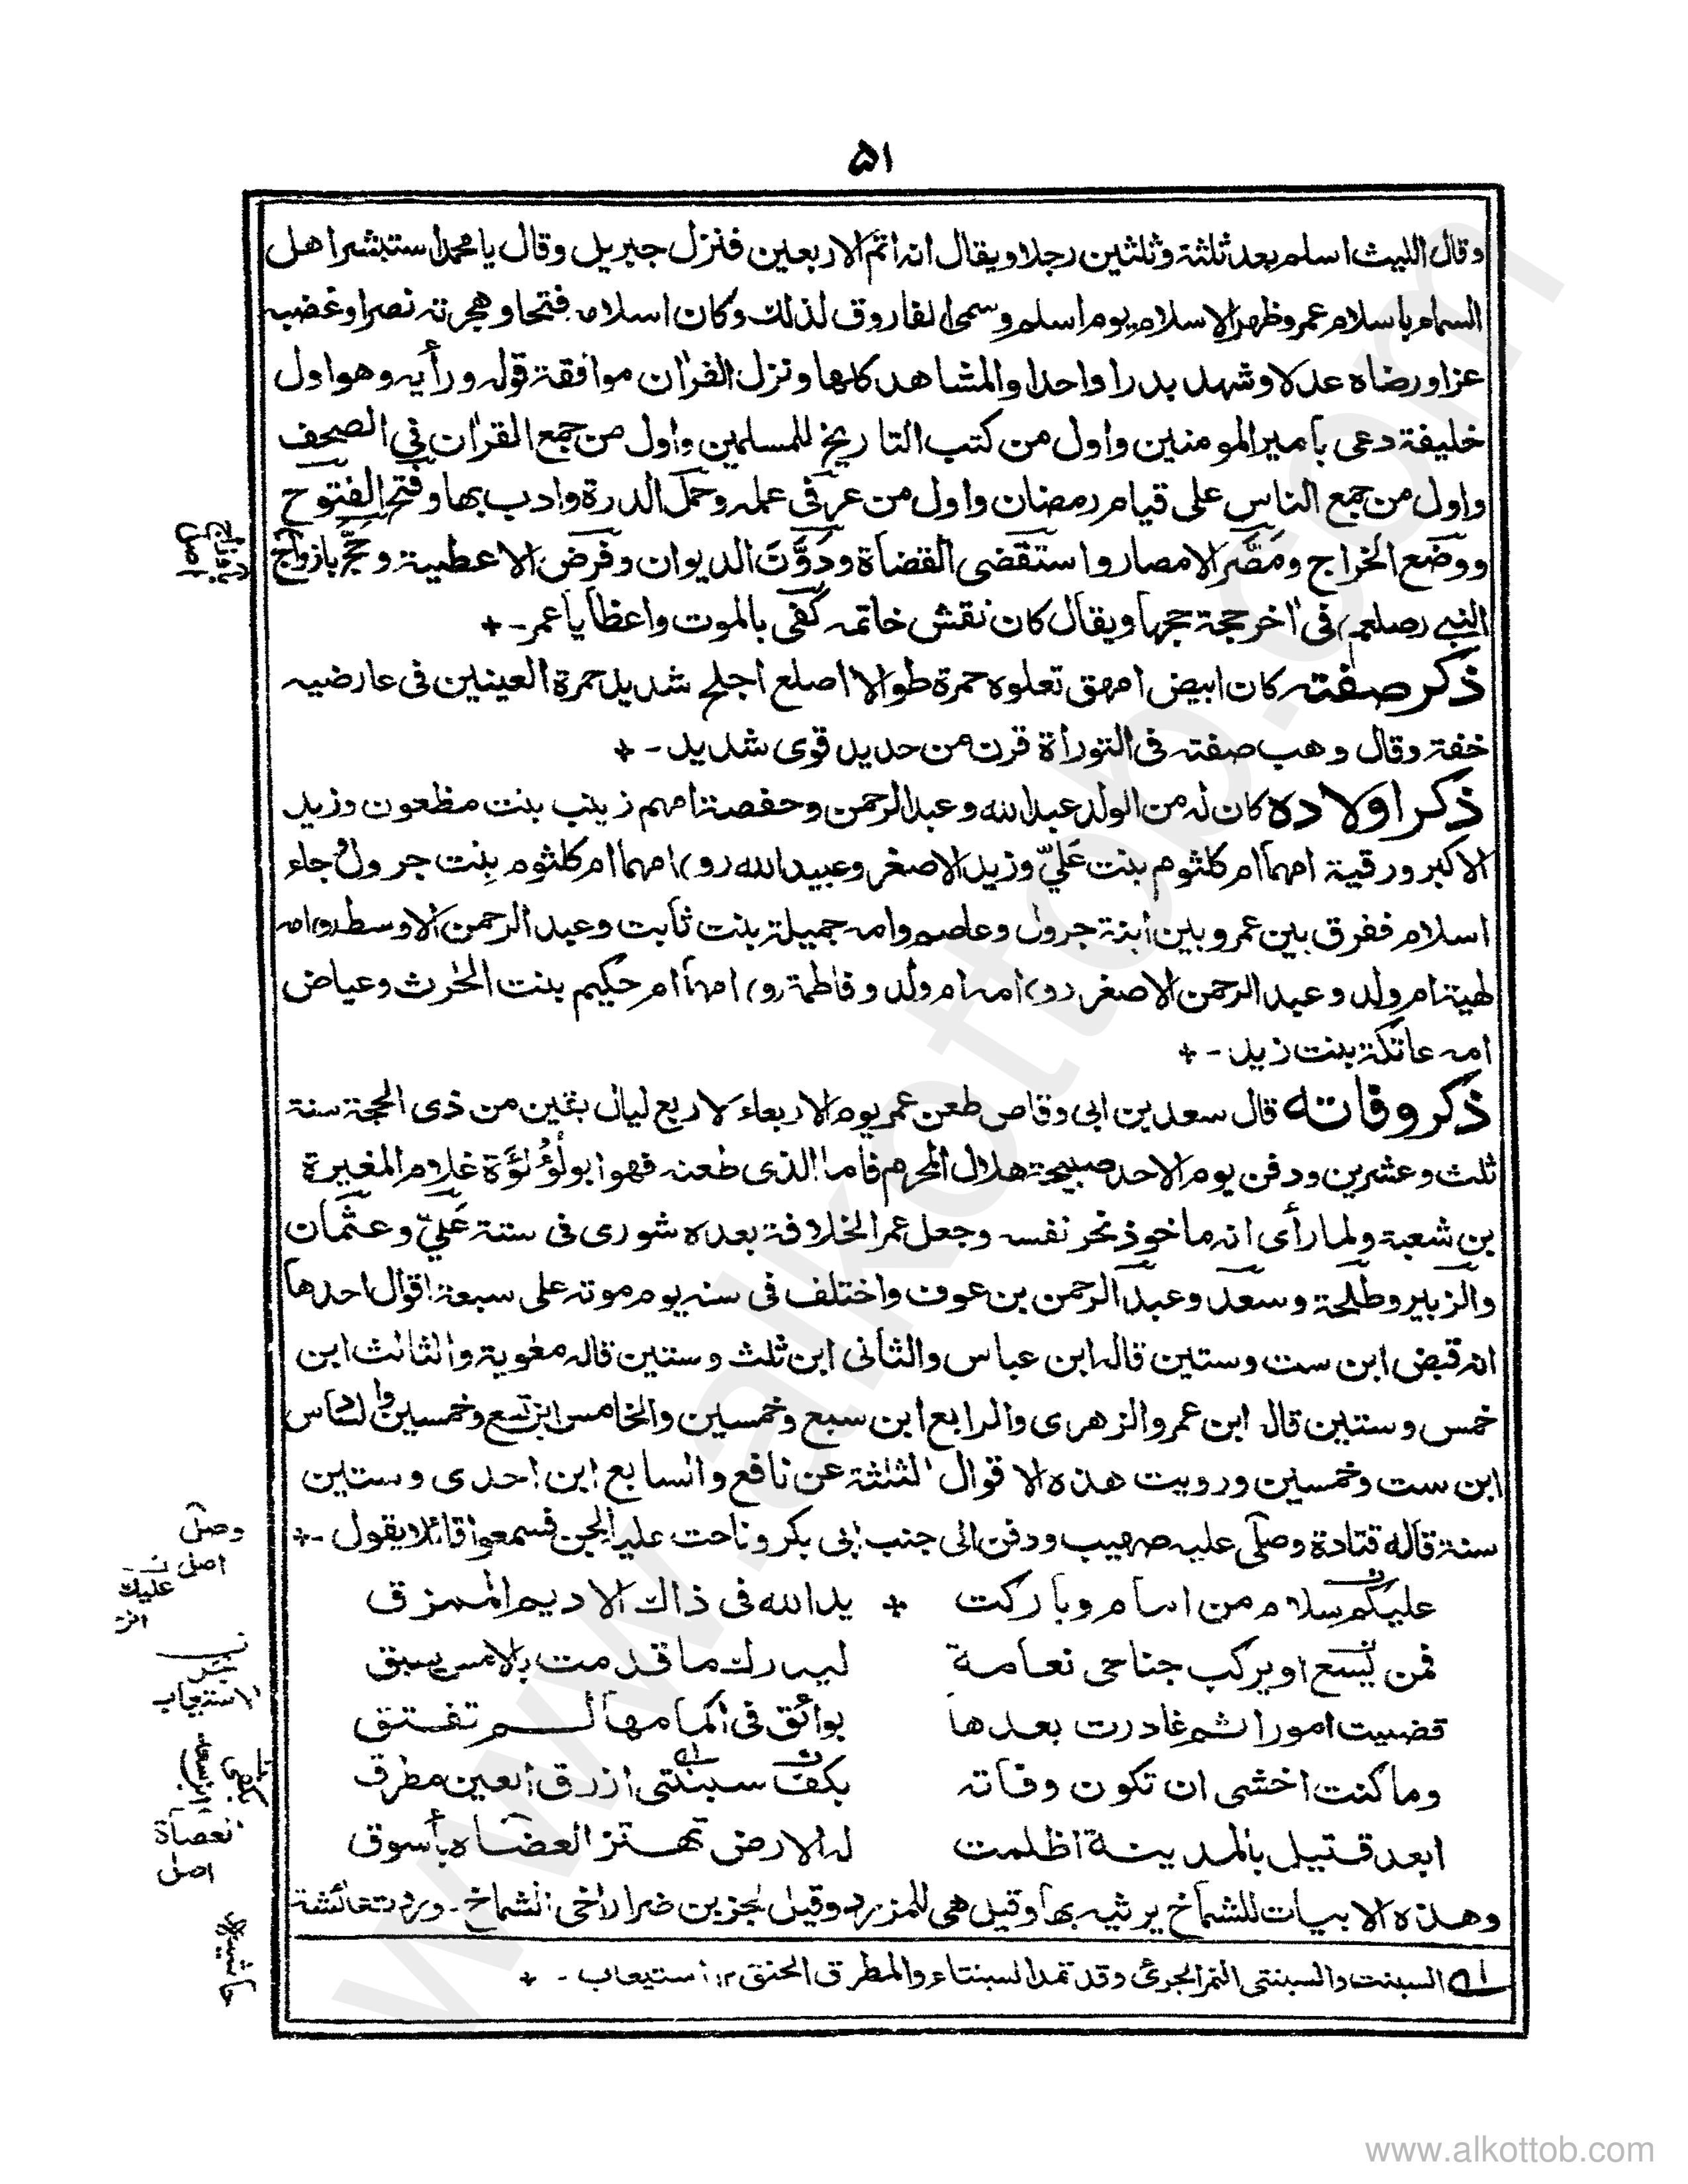 ۵۱
وقال الليث اسلم بعد ثلثة وثلثين رجلا ويقال انه اتم الاربعين فنزل جبريل وقال يا محمد استبشر اهل
السماء باسلام عمر وظهر الاسلام يوم اسلم وسمى الفاروق لذلك وكان اسلامه فتحا وهجرته نصرا وغضبه
عزا ورضاه عدلا وشهد بدرا واحدا والمشاهد كلها ونزل القرأن موافقة قوله ورأيه وهو اول
خليفة دعى بامير المومنين واول من كتب التاريخ للمسلمين واول من جمع القرأن في الصحف
واول من جمع الناس على قيام رمضان واول من عرفى عمله وحمل الدرة وادب بها وفتح الفتوح
ووضع الخراج ومَصَّر الامصار واستقضى القضاة ودَوَّنَ الديوان وفرض الاعطية وحَجَّ بازواج
النبي (صلعم) في أخر حجة حجها ويقال كان نقش خاتمه كفى بالموت واعظا يا عمر ـ +
ذكر صفته كان ابيض امهق تعلوه حمرة طوالا اصلع اجلح شديد حمرة العينين في عارضيه
خفة وقال وهب صفته في التوراة قرن من حديد قوى شديد ـ +
ذكر اولاده كان له من الولد عبد الله وعبد الرحمن وحفصة امهم زينب بنت مظعون وزيد
الاكبر ورقية امهما ام كلثوم بنت عَليّ وزيد الاصغر وعبيد الله (و) امهما ام كلثوم بنت جرول وجاء
اسلام ففرق بين عمرو بين ابنة جرول وعاصم وامه جميلة بنت ثابت وعبد الرحمن الاوسط (و) امه
لهية ام ولد وعبد الرحمن الاصغر (و) امه ام ولد وفاطمة (و) امها ام حكيم بنت الحرث وعياض
امه عاتكة بنت زيد ـ +
ذكر وفاته قال سعد بن ابى وقاص طعن عمر يوم الاربعاء لاربع ليال بقين من ذى الحجة سنة
ثلث وعشرين ودفن يوم الاحد صبيحة هلال المحرم فاما الذى طعنه فهو ابو لؤلؤة غلام المغيرة
بن شعبة ولما رأى انه ماخوذ نحر نفسه وجعل عمر الخلافة بعده شورى في ستة عَليّ وعثمان
والزبير وطلحة وسعد وعبد الرحمن بن عوف واختلف في سنه يوم موته على سبعة اقوال احدها
انه قبض ابن ست وستين قاله ابن عباس والثانى ابن ثلث وستين قاله معوية والثالث ابن
خمس وستين قاله ابن عمر والزهرى والرابع ابن سبع وخمسين والخامس ابن تسع وخمسين والسادس
ابن ست وخمسين ورويت هذه الاقوال الثلثة عن نافع والسابع ابن احدى وستين
سنة قاله قتادة وصلّى عليه صهيب ودفن الى جنب ابى بكر وناحت عليه الجن فسمعوا قائلا يقول ـ +
عليكم سلام من امام وباركت + يد الله في ذاك الاديم الممزق
فمن يسع او يركب جناحى نعامة ليدرك ما قدمت بالامس يسبق
قضيت امورا ثم غادرت بعدها بوائق في اكمامها لم تفتق
وما كنت اخشى ان تكون وفاته بكف سبنتى ازرق العين مطرق
ابعد قتيل بالمدينة اظلمت له الارض تهتز العضاه بأسوق
وهذه الابيات للشماخ يرثيه بها وقيل هى للمزرد وقيل لجزء بن ضرار اخى الشماخ ـ وردت عائشة
السبنت والسبنتى النمر الجرئ وقد تمد السبنتاء والمطرق الحنق ١٢ استيعاب ـ +
اصل
وصل
اصل
عليك
الاستيعاب
ابن سعد
العصاة
اصل
حاشية
www.alkottob.com
www.alkottob.com